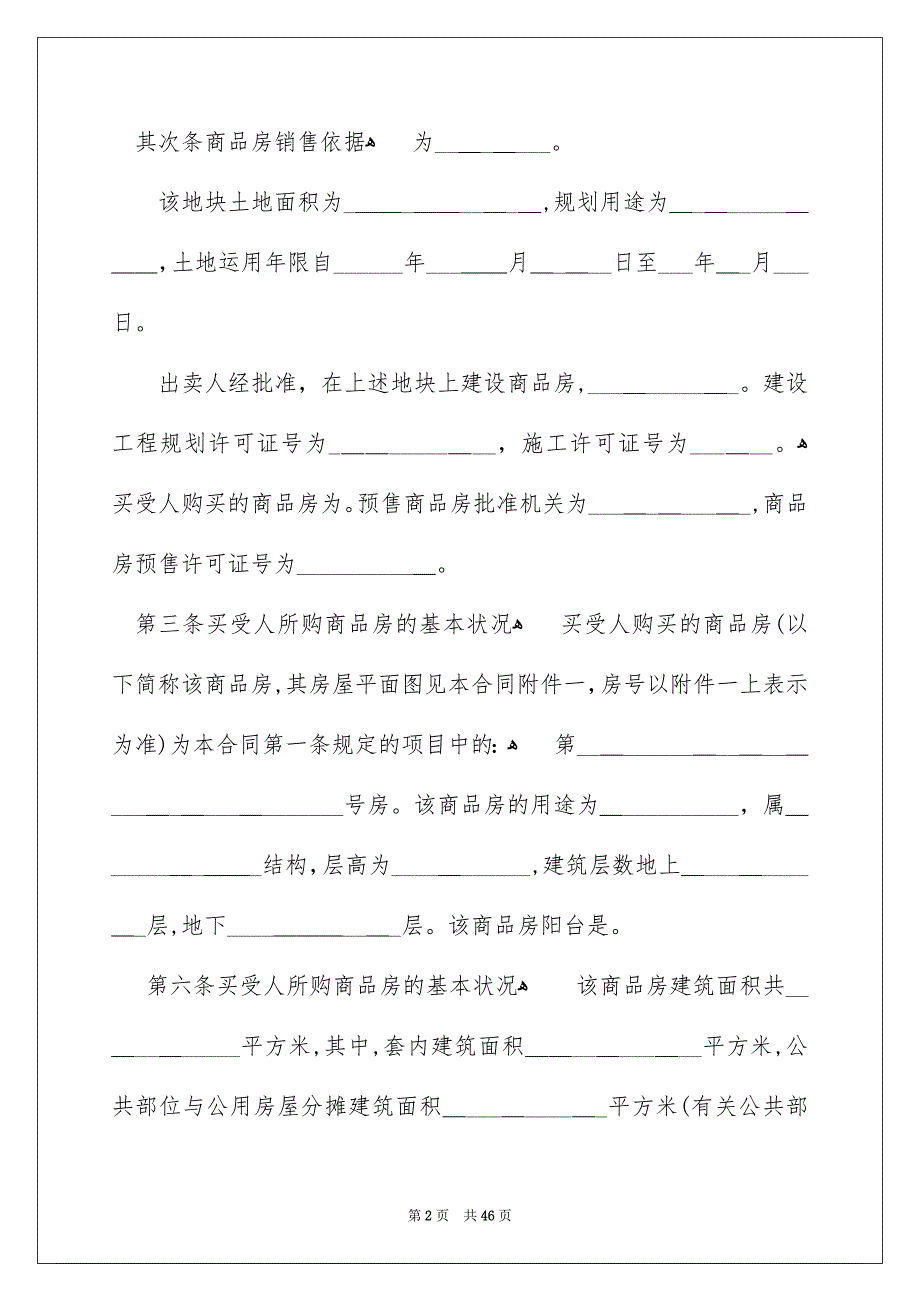 其次条商品房销售依据ﻫ 为__________。
该地块土地面积为_________________,规划用途为____________
____,土地运用年限自______年_______月_______日至___年___月___
日。
出卖人经批准，在上述地块上建设商品房,_____________。建设
工程规划许可证号为______________，施工许可证号为_______。ﻫ
买受人购买的商品房为。预售商品房批准机关为______________,商品
房预售许可证号为____________。
第三条买受人所购商品房的基本状况ﻫ 买受人购买的商品房(以
下简称该商品房,其房屋平面图见本合同附件一,房号以附件一上表示
为准)为本合同第一条规定的项目中的：ﻫ 第____________________
____________________号房。该商品房的用途为____________，属__
_____________结构,层高为____________,建筑层数地上___________
___层,地下_______________层。该商品房阳台是。
第六条买受人所购商品房的基本状况ﻫ 该商品房建筑面积共__
___________平方米,其中,套内建筑面积_______________平方米,公
共部位与公用房屋分摊建筑面积______________平方米(有关公共部
第 2 页 共 46 页